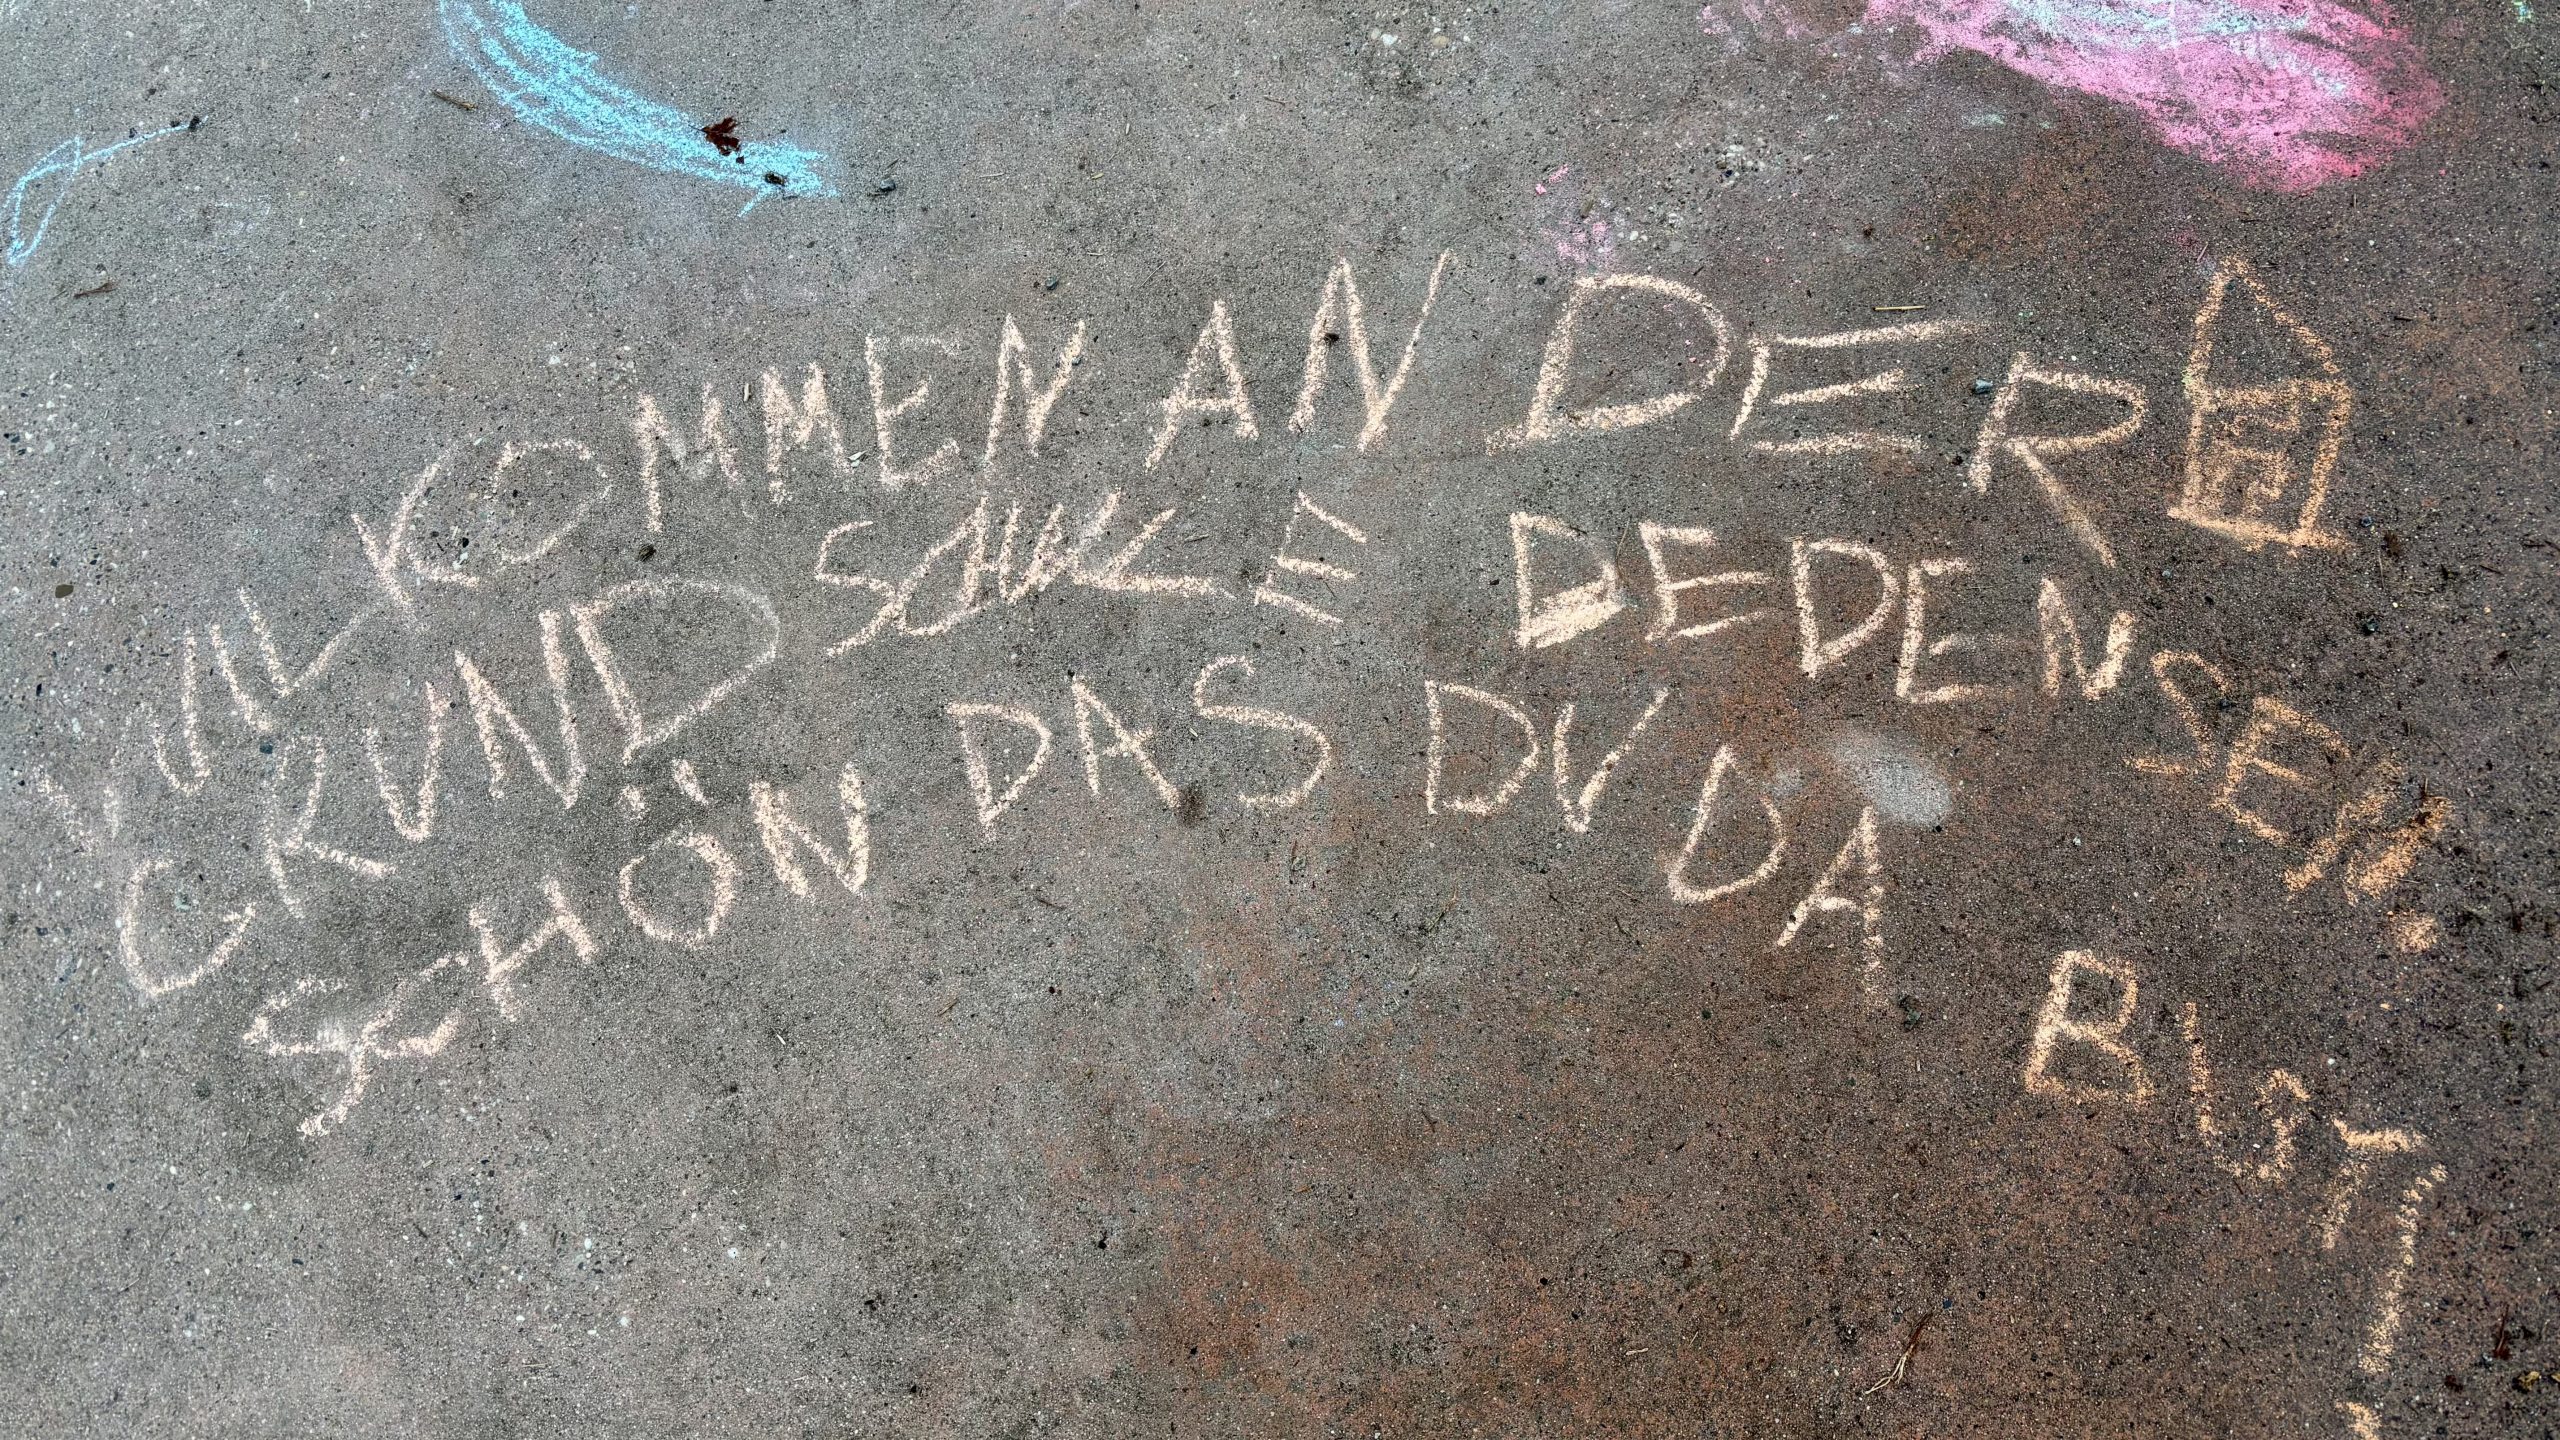 WILKOMMEN AN DER
GRUNDSCHULE BEDENSEN!
SCHÖN DAS DU DA BIST!